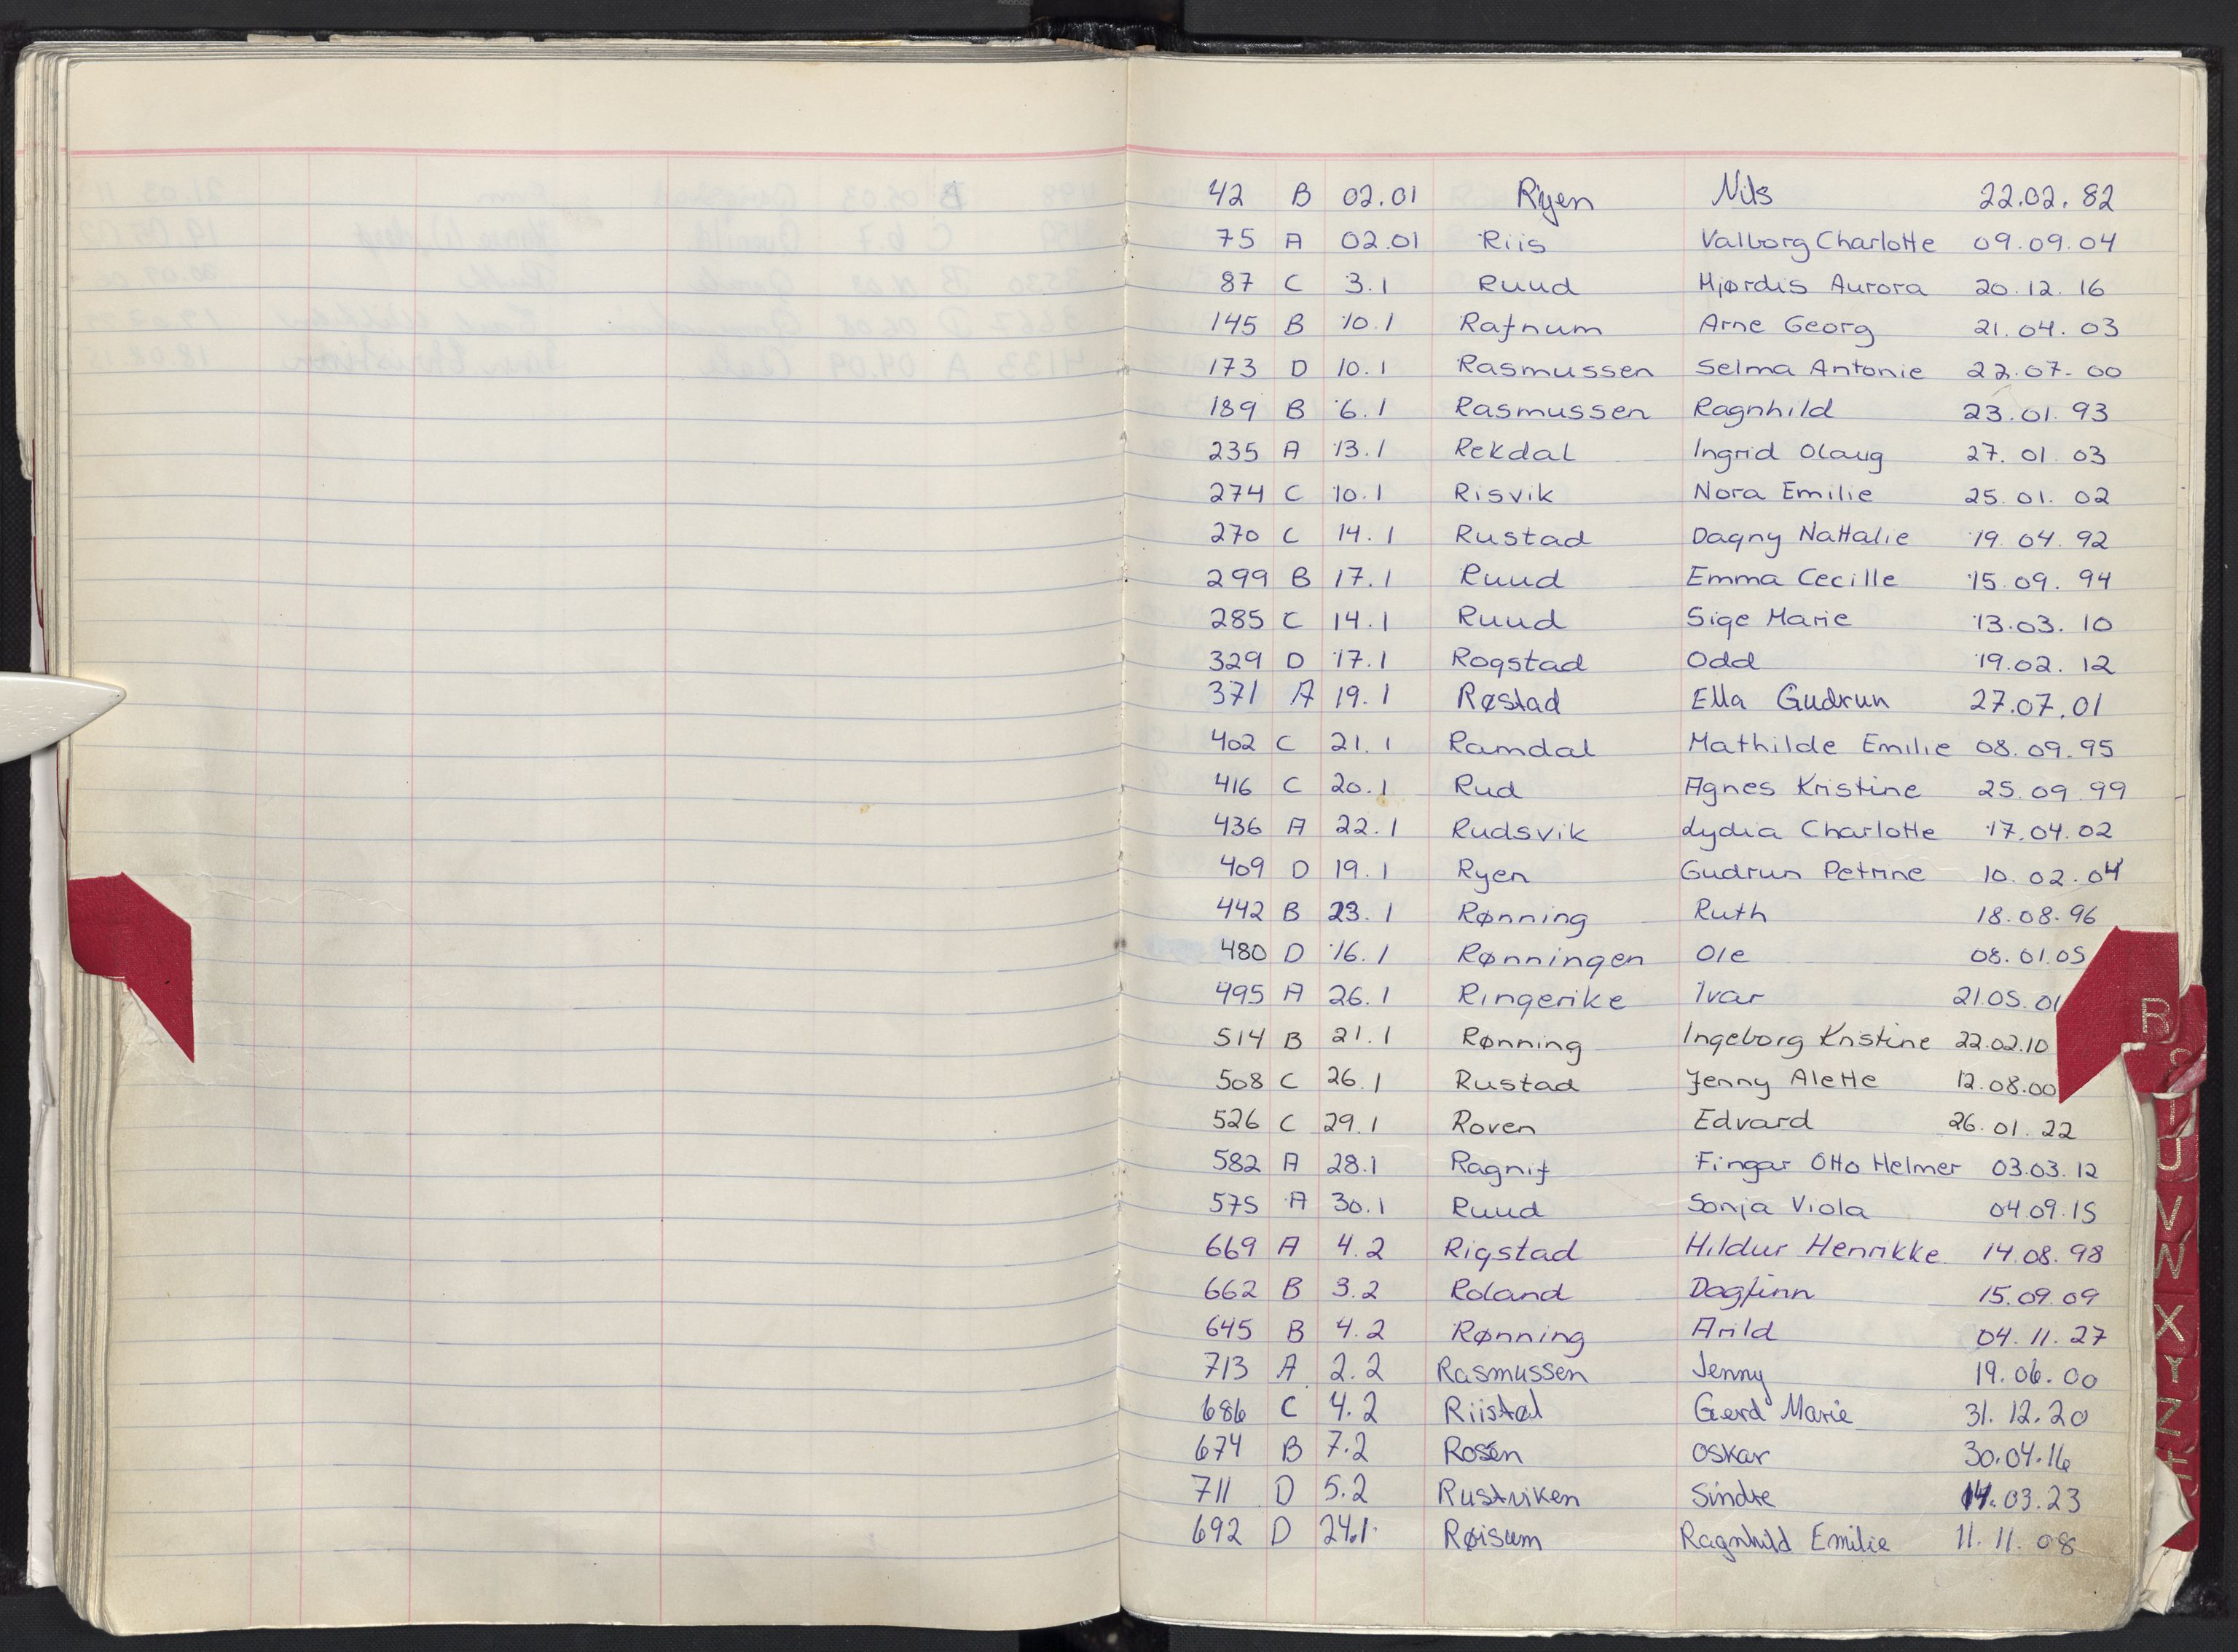 42 B 02.01 Ryen Nils 22.02.82
75 A 02.01 Riis Valborg Charlotte 09.09.04
87 C 3.1 Ruud Hjørdis Aurora 20.12.16
145 B 10.1 Rafnum Arne Georg 21.04.03
173 D 10.1 Rasmussen Selma Antonie 22.07.00
189 B 6.1 Rasmussen Ragnhild 23.01.93
235 A 13.1 Rekdal Ingrid Olaug 27.01.03
274 C 10.1 Risvik Nora Emilie 25.01.02
270 C 14.1 Rustad Dagny Nathalie 19.04.92
299 B 17.1 Ruud Emma Cecille 15.09.94
285 C 14.1 Ruud Sige Marie 13.03.10
329 D 17.1 Rogstad Odd 19.02.12
371 A 19.1 Røstad Ella Gudrun 27.07.01
402 C 21.1 Ramdal Mathilde Emilie 08.09.95
416 C 20.1 Rud Agnes Kristine 25.09.99
436 A 22.1 Rudsvik Lydia Charlotte 17.04.02
409 D 19.1 Ryen Gudrun Petrine 10.02.04
442 B 23.1 Rønning Ruth 18.08.96
480 D 16.1 Rønningen Ole 08.01.05
495 A 26.1 Ringerike Ivar 21.05.01
514 B 21.1 Rønning Ingeborg Kristine 22.02.10
508 C 26.1 Rustad Jenny Alette 12.08.00
526 C 29.1 Roven Edvard 26.01.22
582 A 28.1 Ragnif Fingar Otto Helmer 03.03.12
575 A 30.1 Ruud Sonja Viola 04.09.15
669 A 4.2 Rigstad Hildur Henrikke 14.08.98
662 B 3.2 Roland Dagfinn 15.09.09
645 B 4.2 Rønning Arild 04.11.27
713 A 2.2 Rasmussen Jenny 19.06.00
686 C 4.2 Riistøl Gerd Marie 31.12.20
674 B 7.2 Rosén Oskar 30.04.16
711 D 5.2 Rustviken Sindre 14.03.23
692 D 24.1 Røisum Ragnhild Emilie 11.11.08
R
S
T
U
V
W
X
Y
Z